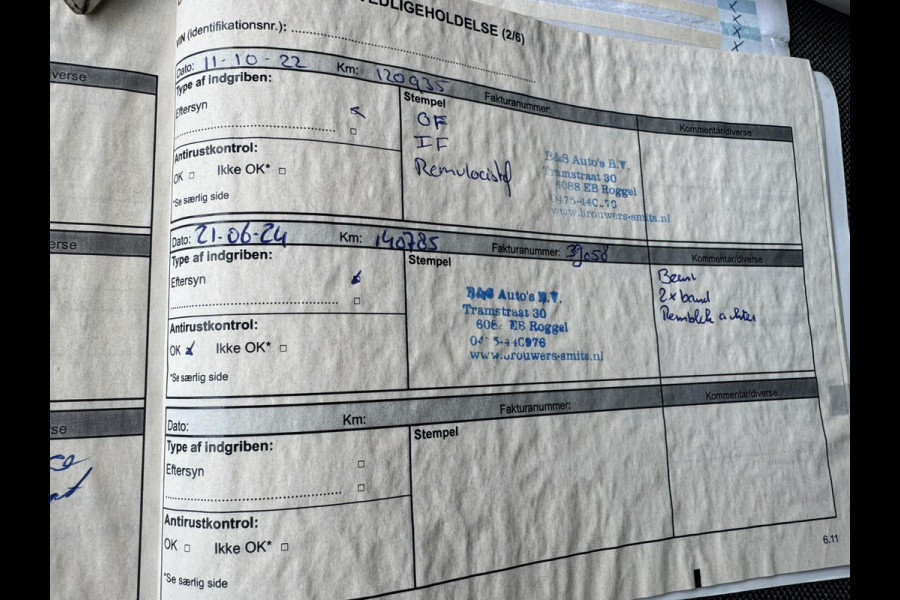 VEDLIGEHOLDELSE (2/6)
VIN (identifikationsnr.):
Dato: 11-10-22 Km: 120935 Fakturanummer:
Type af indgriben: Stempel Kommentar/diverse
Eftersyn
OF
IF
Antirustkontrol:
OK Ikke OK*
*Se særlig side
B&S Auto's B.V.
Tramstraat 30
6088 EB Roggel
www.brouwers-smits.nl
Dato: 21-06-24 Km: 140785 Fakturanummer: 39058
Type af indgriben: Stempel Kommentar/diverse
Eftersyn
B&S Auto's B.V.
Tramstraat 30
EB Roggel
www.brouwers-smits.nl
2x band
Remblok achter
Antirustkontrol:
OK Ikke OK*
*Se særlig side
Dato: Km: Fakturanummer: Kommentar/diverse
Type af indgriben: Stempel
Eftersyn
Antirustkontrol:
OK Ikke OK*
*Se særlig side
6.11